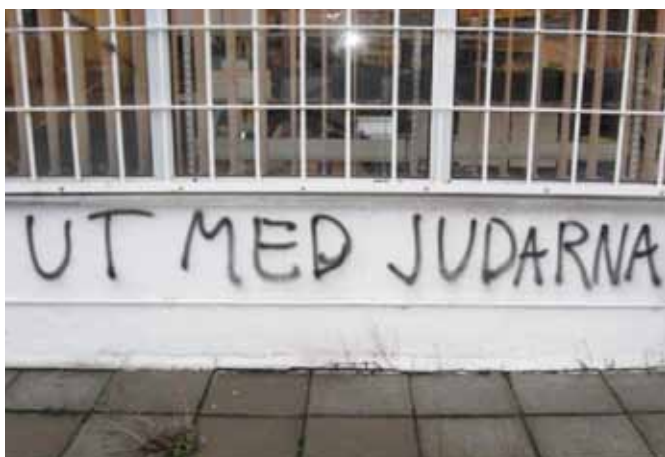 UT MED JUDARNA